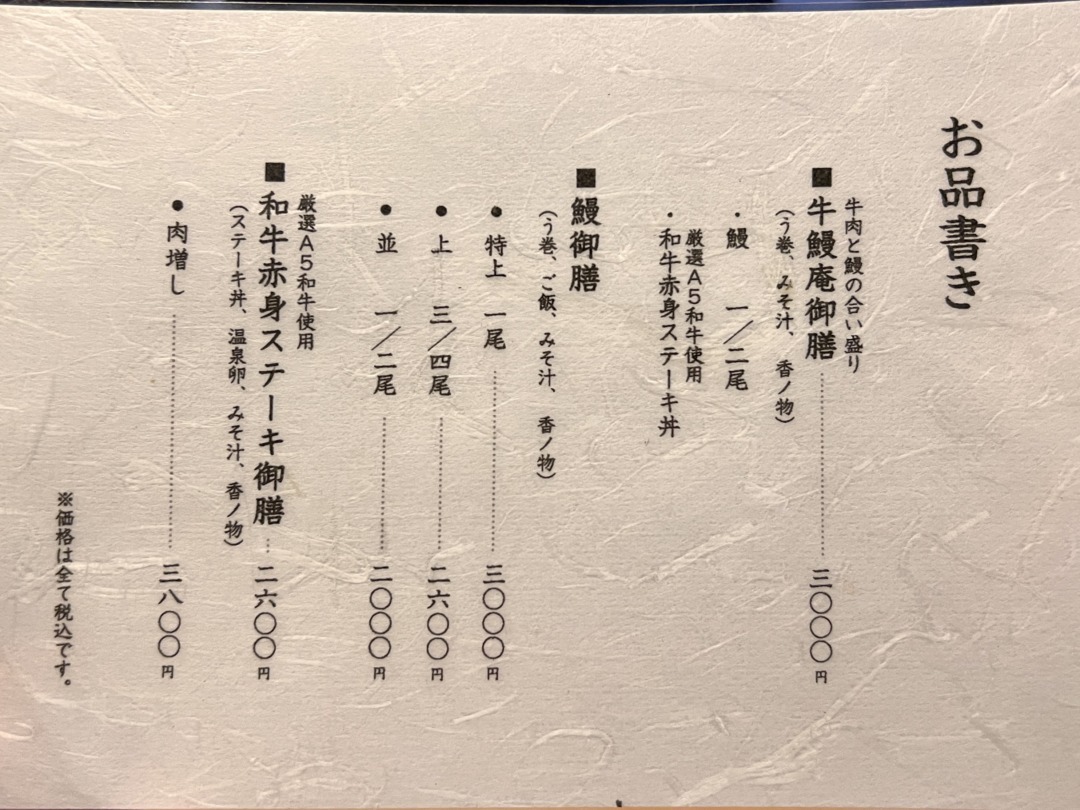 お品書き
牛肉と鰻の合い盛り
■牛鰻庵御膳 三〇〇〇円
(う巻、みそ汁、香ノ物)
・鰻 一/二尾
厳選A5和牛使用
・和牛赤身ステーキ丼
■鰻御膳
(う巻、ご飯、みそ汁、香ノ物)
●特上 一尾 三〇〇〇円
●上 三/四尾 二六〇〇円
●並 一/二尾 二〇〇〇円
厳選A5和牛使用
■和牛赤身ステーキ御膳 二六〇〇円
(ステーキ丼、温泉卵、みそ汁、香ノ物)
●肉増し 三八〇〇円
※価格は全て税込です。